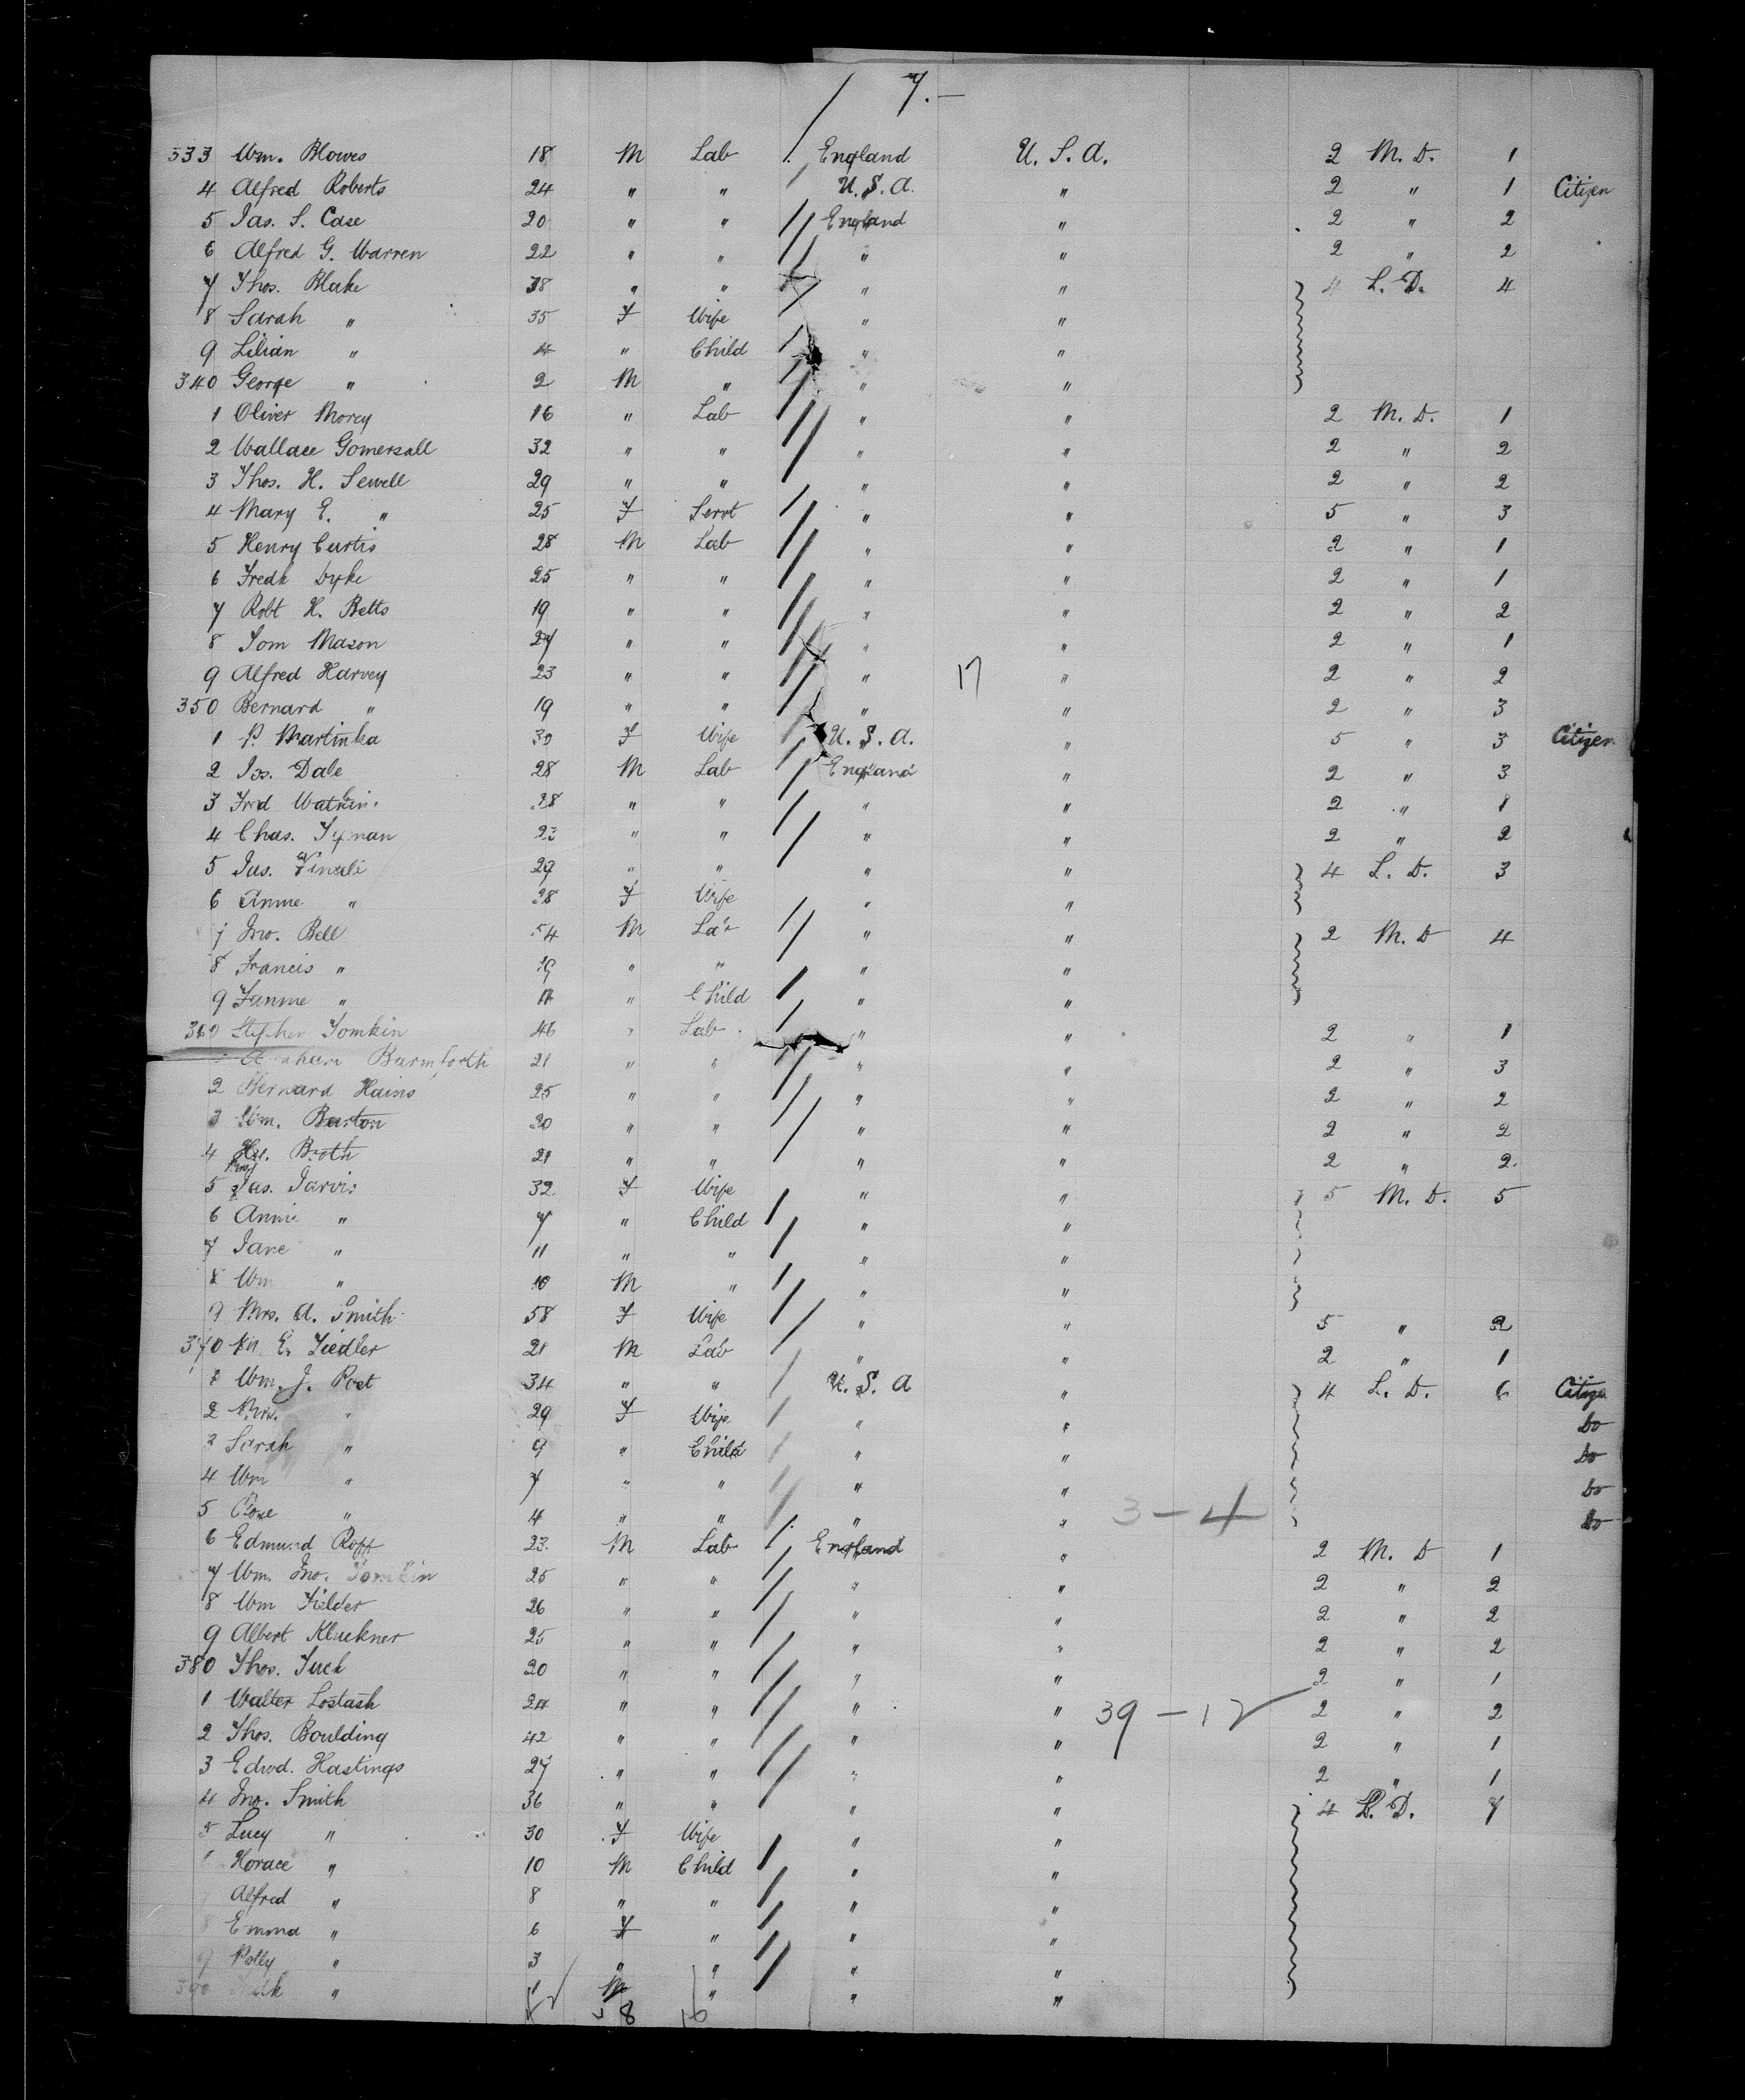 7.—
333 Wm. Blowes 18 M Lab England U. S. A. 2 M. D. 1
4 Alfred Roberts 24 " " U. S. A. " 2 " 1 Citizen
5 Jas. S. Case 20 " " England " 2 " 2
6 Alfred G. Warren 22 " " " " 2 " 2
7 Thos. Blake 38 " " " " 4 L. D. 4
8 Sarah " 35 F Wife " "
9 Lilian " 4 " Child " "
340 George " 2 M " " "
1 Oliver Morey 16 " Lab " " 2 M. D. 1
2 Wallace Gomersall 32 " " " " 2 " 2
3 Thos. H. Sewell 29 " " " " 2 " 2
4 Mary E. " 25 F Servt " " 5 " 3
5 Henry Curtis 28 M Lab " " 2 " 1
6 Fredk Dyke 25 " " " " 2 " 1
7 Robt H. Betts 19 " " " " 2 " 2
8 Tom Mason 27 " " " " 2 " 1
9 Alfred Harvey 23 " " " 17 " 2 " 2
350 Bernard " 19 " " " " 2 " 3
1 P. Martinka 30 F Wife U. S. A. " 5 " 3 Citizen
2 Jos. Dale 28 M Lab England " 2 " 3
3 Fred Watkin. 28 " " " " 2 " 1
4 Chas. Tyman 23 " " " " 2 " 2
5 Jas. 29 " " " " 4 L. D. 3
6 Annie " 28 F Wife " "
7 Jno. Bell 54 M Lab " " 2 M. D 4
8 Francis " 19 " " " "
9 Fannie " " Child " "
360 Stephen Tomkin 46 " Lab " " 2 " 1
Abraham Barmforth 21 " " " " 2 " 3
2 Bernard Hains 25 " " " " 2 " 2
3 Wm. Burton 20 " " " " 2 " 2
4 Hy. Broth 21 " " " " 2 " 2.
5 Mrs Jas. Jarvis 32 F Wife " " 5 M. D. 5
6 Annie " 7 " Child " "
7 Jane " 11 " " " "
8 Wm " 10 M " " "
9 Mrs. A. Smith 58 F Wife " " 5 " 2
370 E. Fiedler 21 M Lab " " 2 " 1
1 Wm. J. Poet 34 " " U. S. A " 4 L. D. 6 Citizen
2 Mrs. " 29 F Wife " " Do
3 Sarah " 9 " Child " " Do
4 Wm " 7 " " " " Do
5 " 4 " " " " 3 – 4 Do
6 Edmund Roff 23. M Lab England " 2 M. D 1
7 Wm. Jno. Tomkin 25 " " " " 2 " 2
8 Wm Fielder 26 " " " " 2 " 2
9 Albert Kluckner 25 " " " " 2 " 2
380 Thos. Tuck 20 " " " " 2 " 1
1 Walter Lostash 24 " " " " 39 – 12 2 " 2
2 Thos. Boulding 42 " " " " 2 " 1
3 Edwd. Hastings 27 " " " " 2 " 1
4 Jno. Smith 36 " " " " 4 L. D. 7
5 Lucy " 30 F Wife " "
6 Horace " 10 M Child " "
Alfred " 8 " " " "
8 Emma " 6 F " " "
9 Polly " 3 " " " "
390 " M " " "